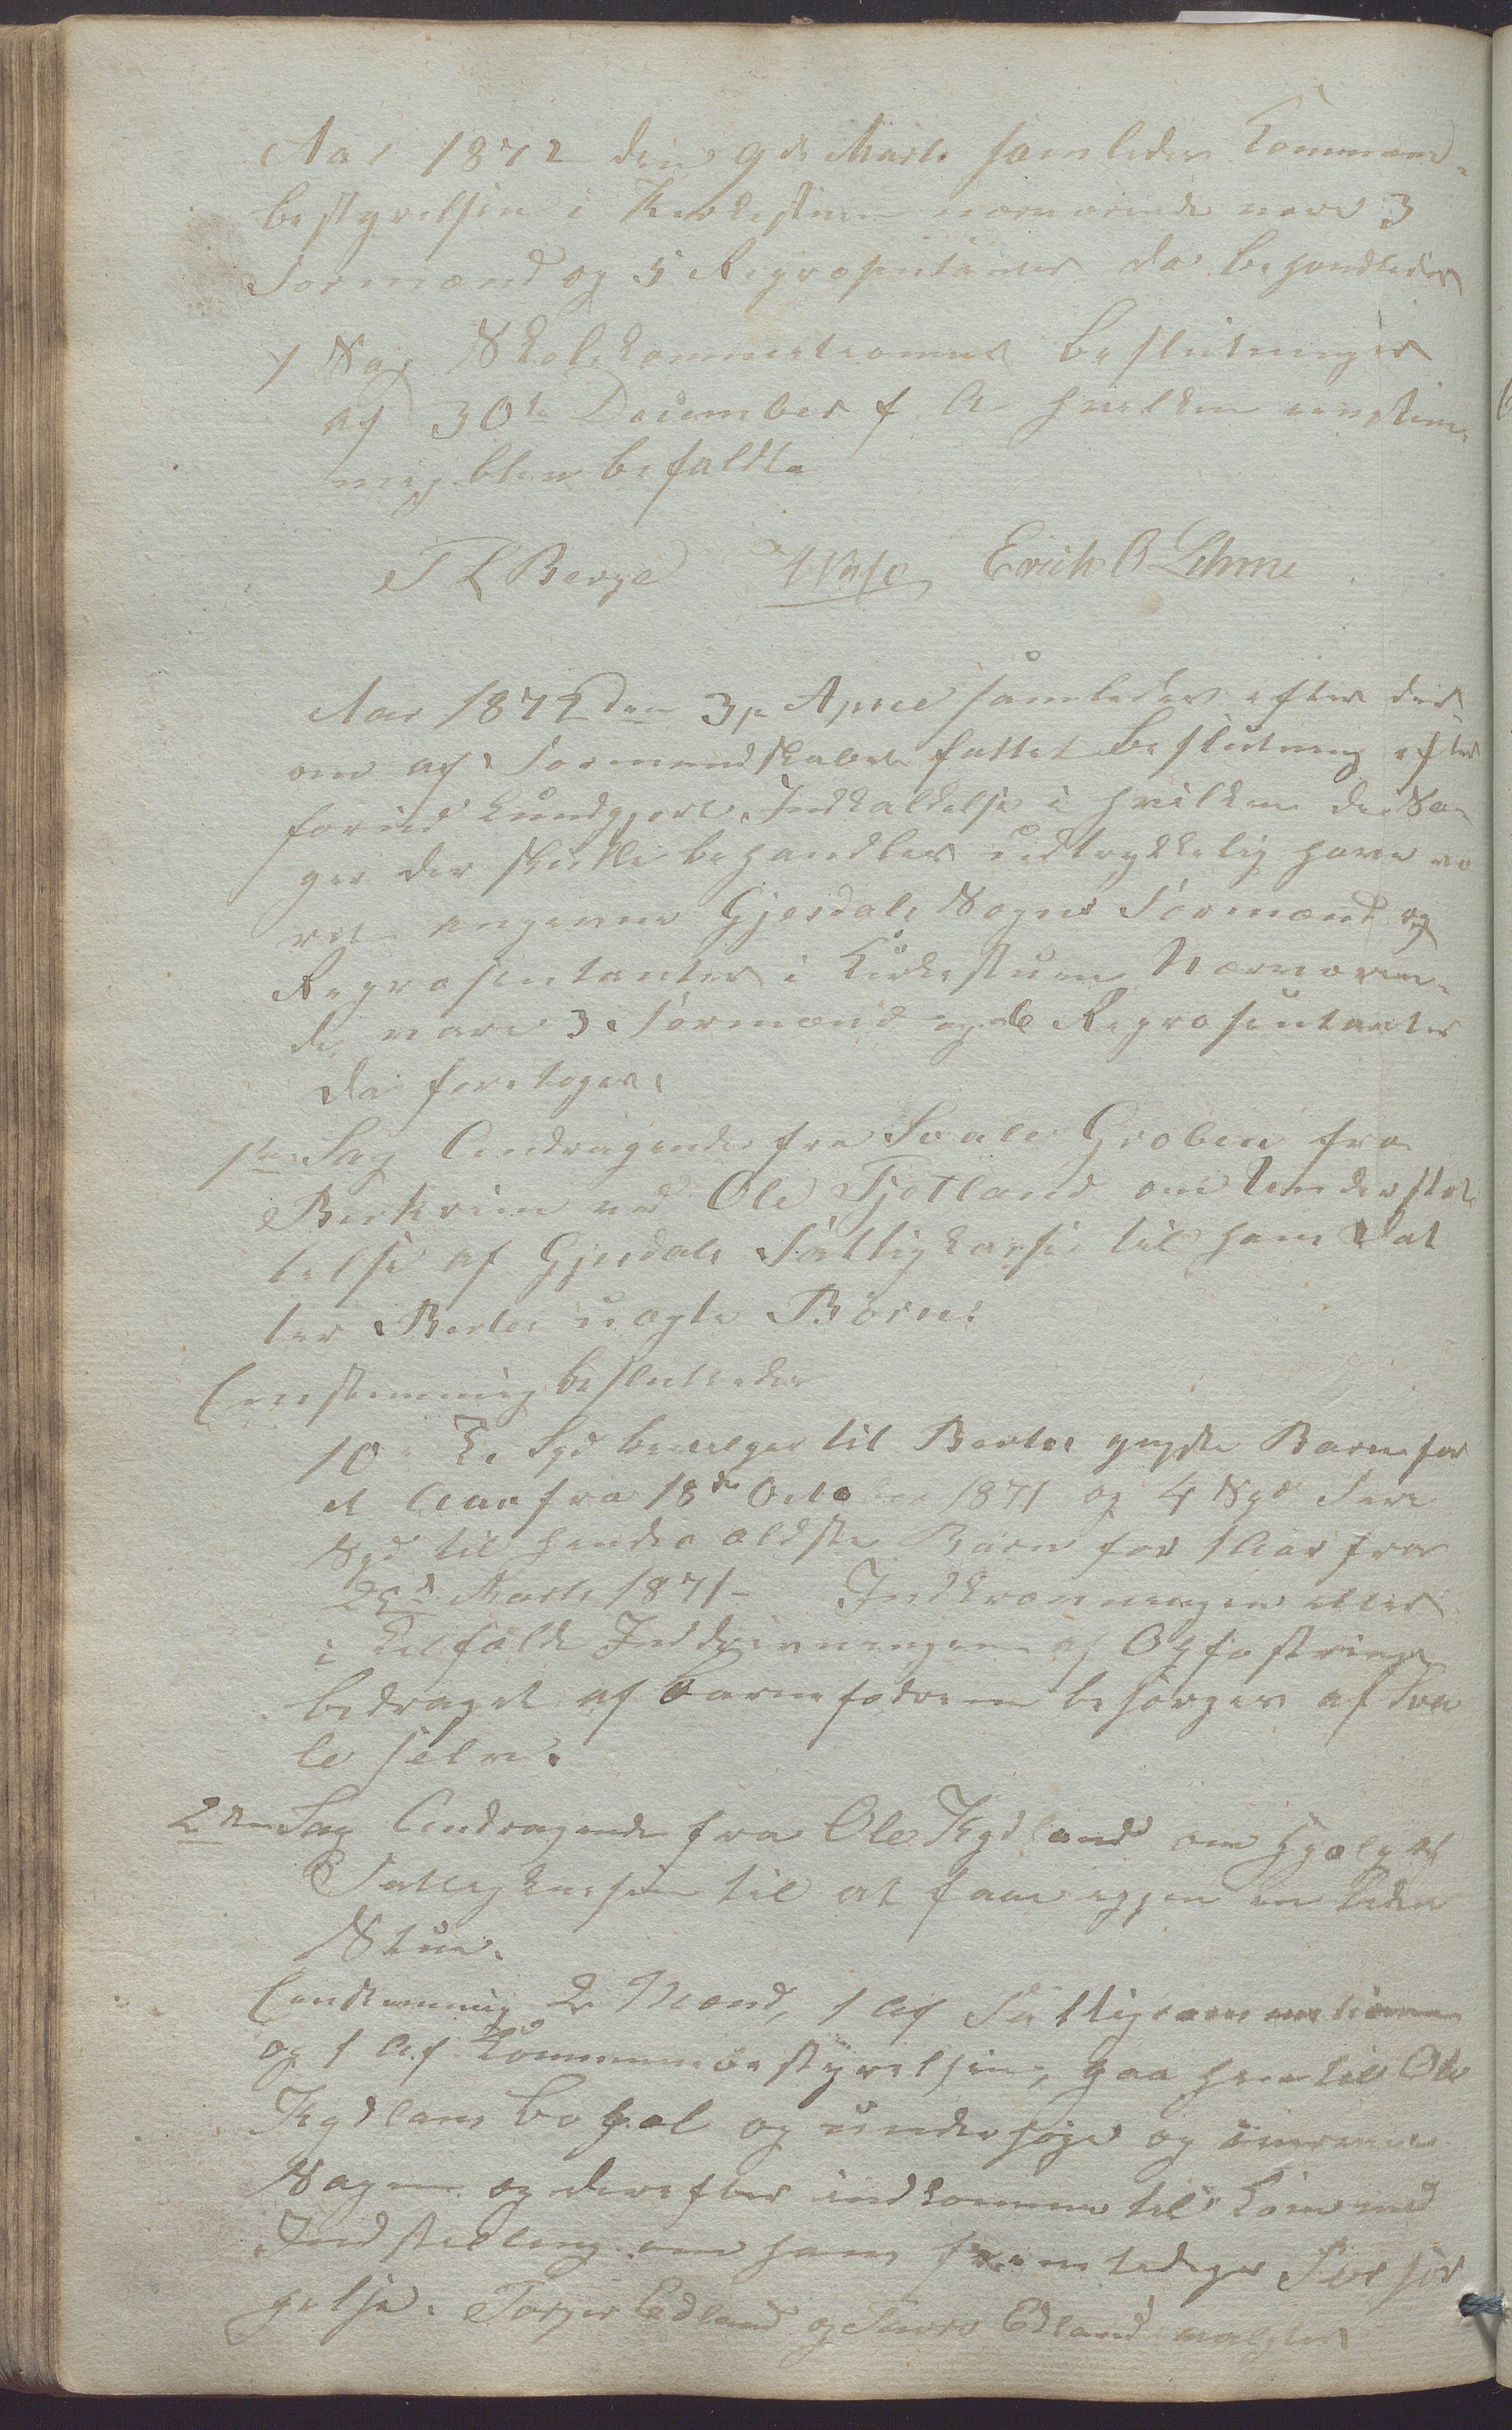 Aar 1872 den 9de Marts samledes Kommune-
bestyrelsen i Kirkestuen nærværende vare 3
Formænd og 5 Repræsentanter da behandledes
1 Sag Skolekommisionens Beslutninger
af 30te December f A hvilken eenstem-
mig blev befaldt.
T L Berge Erich O Lihme
Aar 1872 den 3je Apriel samledes efter der-
om af Formandskabet fattet Beslutning efter
forud kundgjort Indkaldelse i hvilken de Sa-
ger der skulle behandles udtrykkelig have væ
ret angivne Gjesdals Sogns Formænd og
Repræsentanter i Kirkestuen Nærværen-
de vare 3 Formænd og 6 Repræsentanter
da foretoges:
1ste Sag Andragende fra Svale Groben fra
Birkrim ved Ole Tjotland om Understøt-
telse af Gjesdals Fattigkasse til hans Dat
ter Bertes uægte Børn:
Eenstemmig besluttedes
10 Spd bevilges til Bertes yngste Barn for
et Aar fra 18de October 1871 og 4 Spd Fire
Spd til hendes ældste Barn for 1 Aar fra
25de Marts 1871- Indkrævningen eller
i Tilfælde Inddrivningen af Opfostrings
bedraget af Barnefædrene besørges af Sva
le selv.
2den Sag Andragende fra Ole Kydland om Hjælp af
Fattigkassen til at faae igjen en liden
Stue.
Eenstemmig 2 Mænd, 1 Af Fattigcommisionen
og 1 Af Kommunebestyrelsen, gaa hen til Ole
Kydlans bopæl og undersøge og
Sagen og derefter indkomme til Kom med
Indstilling om hans fremtidige Forsør
gelse. Torger Edland og Edland valgtes